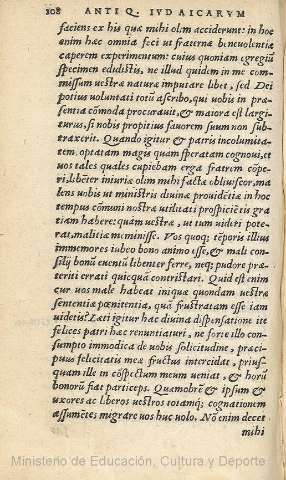 208 ANTIQ. IVDAICARVM
faciens ex his quæ mihi olim acciderunt: in hoc
enim hæc omnia feci ut fraternæ beneuolentiæ
caperem experimentum: cuius quoniam egregiū
specimen edidistis, ne illud quidem in me com-
missum uestræ naturæ imputare libet, sed Dei
potius voluntati totū ascribo, qui uobis in præ-
sentia cōmoda procurauit, & maiora est largi-
turus, si nobis propitius fauorem suum non sub-
traxerit. Quando igitur & patris incolumita-
tem optatam magis quàm speratam cognoui, et
uos tales quales cupiebam erga fratrem cōpe-
ri, libēter iniuriæ olim mihi factæ obliuiscor, ma
lens uobis ut ministris diuinæ prouidētiæ in hoc
tempus cōmuni nostræ utilitati prospiciētis gra
tiam habere: quàm uestræ, ut tum uideri pote-
rat, malitiæ meminisse. Vos quoq; tēporis illius
immemores iubeo bono animo esse, & mali con-
silij bonū euentū libenter ferre, neq; pudore præ-
teriti errati quicquā contristari. Quid est enim
cur uos malè habeat iniquæ quondam uestræ
sententiæ pœnitentia, quā frustratam esse iam
uidetis? Læti igitur hac diuina dispensatione ite
felices patri hæc renuntiaturi, ne forte illo con-
sumpto immodica de uobis solicitudine, præci-
puus felicitatis meæ fructus intercidat, prius-
quam ille in cōspectum meum ueniat, & horū
bonorū fiat particeps. Quamobrē & ipsum &
uxores ac liberos uestros totamq; cognationem
assumētes migrare uos huc uolo. Nō enim decet
mihi
Ministerio de Educación, Cultura y Deporte